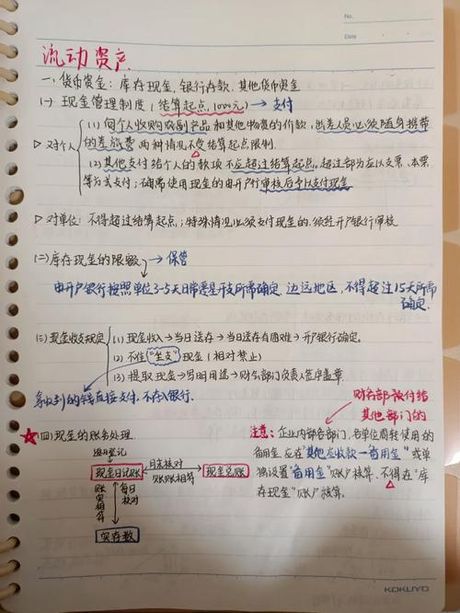 No.
Date
流动资产
一、货币资金：库存现金、银行存款、其他货币资金
(一) 现金管理制度（结算起点，1000元）→支付
▷对个人
(1) 向个人收购农副产品和其他物资的价款，出差人员必须随身携带
的差旅费 两种情况不受结算起点限制.
(2) 其他支付给个人的款项不应超过结算起点，超过部分应以支票、本票
等方式支付；确需使用现金的由开户行审核后予以支付现金
▷对单位：不得超过结算起点；特殊情况必须支付现金的.须经开户银行审核
(二) 库存现金的限额 → 保管
由开户银行按照单位3-5天日常零星开支所需确定 边远地区，不得超过15天所需
确定.
(三) 现金收支规定
(1) 现金收入→当日送存→当日送存有困难→开户银行确定.
(2) 不准“坐支”现金（相对禁止）
(3) 提取现金→写明用途→财务部门负责人签字盖章
拿收到的钱直接支付，不存入银行.
财务部预付给
其他部门的
★(四) 现金的账务处理.
逐日登记
现金日记账
月末核对
账账相符
现金总账
账实相符
每日核对
实存数
注意：企业内部各部门、各单位周转使用的
备用金，应在“其他应收款—备用金”或单
独设置“备用金”账户核算.不得在“库
存现金”账户核算.
KOKUYO